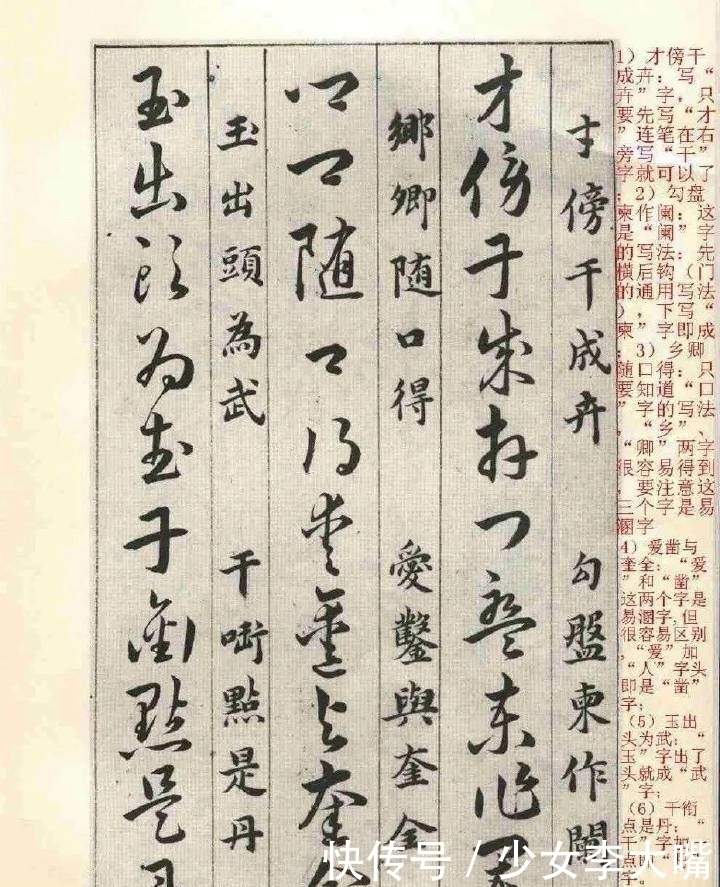 1）才傍干
成卉：写“
卉”字，只
要先写“才
”连笔在右
旁写“干”
字就可以了
；2）勾盘
柬作阑：这
是“阑”字
的写法：先
横后钩（门
的通用写法
），下写“
柬”字即成
；3）乡卿
随口得：只
要知道“口
”字的写法
，“乡”、
“卿”两字
很容易得到
，要注意这
三个字是易
溷字
4）爱凿与
奎全：“爱
”和“凿”
这两个字是
易溷字,但
很容易区别
,“爱”加
“人”字头
即是“凿”
字；
（5）玉出
头为武：“
玉”字出了
头就成“武
”字；
（6）干衔
点是丹：“
干”字加
点即“
字。
才傍干成卉 勾盤柬作闌
才傍干成卉勾盤柬作
鄉卿随口得 愛鑿與奎全
鄉卿随口得愛鑿與奎
玉出頭為武 干啣點是丹
玉出頭為武干銜點是
快传号 / 少女李大嘴